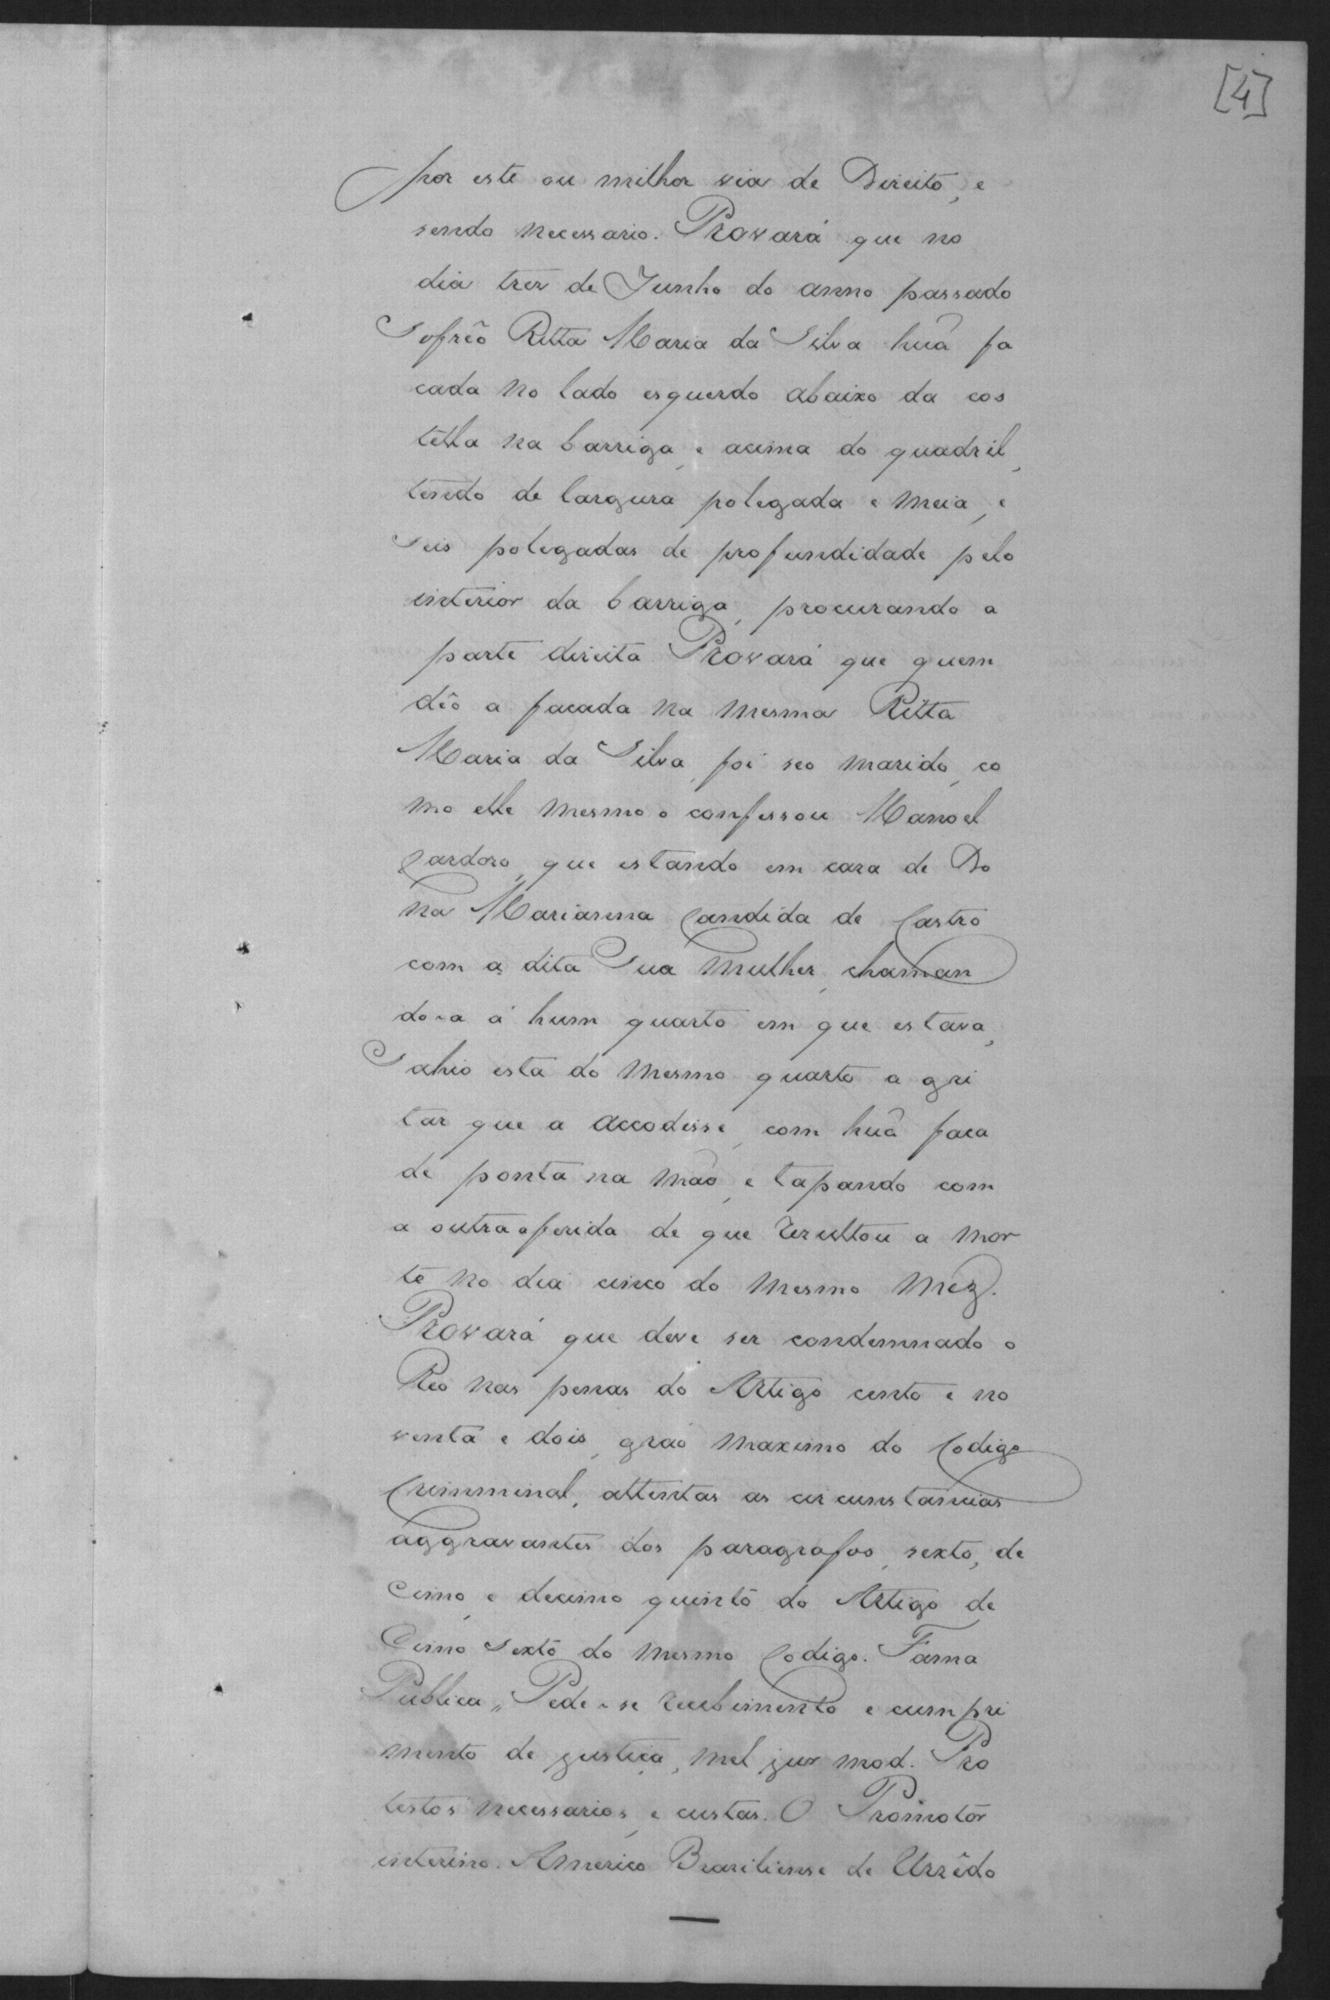 [4]
por este ou milhor via de Direito, e
sendo necessario. Provará que no
dia trez de Junho do anno passado
Sofrêo Ritta Maria da Silva huã fa
cada no lado esquerdo abaixo da cos
tella na barriga, e acima do quadril,
tendo de largura polegada e meia, e
Seis polegadas de profundidade pelo
interior da barriga, procurando a
parte direita Provará que quem
dêo a facada na mesma Ritta
Maria da Silva, foi seo marido, co
mo elle mesmo o confessou Manoel
Cardozo, que estando em caza de Do
na Marianna Candida de Castro
com a dita Sua Mulher, chaman
do-a á hum quarto em que estava,
Sahio esta do mesmo quarto a gri
tar que a accodisse, com huã faca
de ponta na mão, e tapando com
a outra a ferida de que rezultou a mor
te no dia cinco do mesmo mez.
Provará que deve ser condemnado o
Reo nas penas do Artigo cento e no
venta e dois, gráo maximo do Codigo
Criminal, attentas as circunstancias
aggravantes dos paragrafos, sexto, de
cimo, e decimo quinto do Artigo de
Cimo Sexto do mesmo Codigo. Fama
Publica,, Pede-se recebimento e cumpri
mento de justiça, mel jur mod. Pro
testos necessarios, e custas. O Promotor
interino. Americo Braziliense de Urzêdo